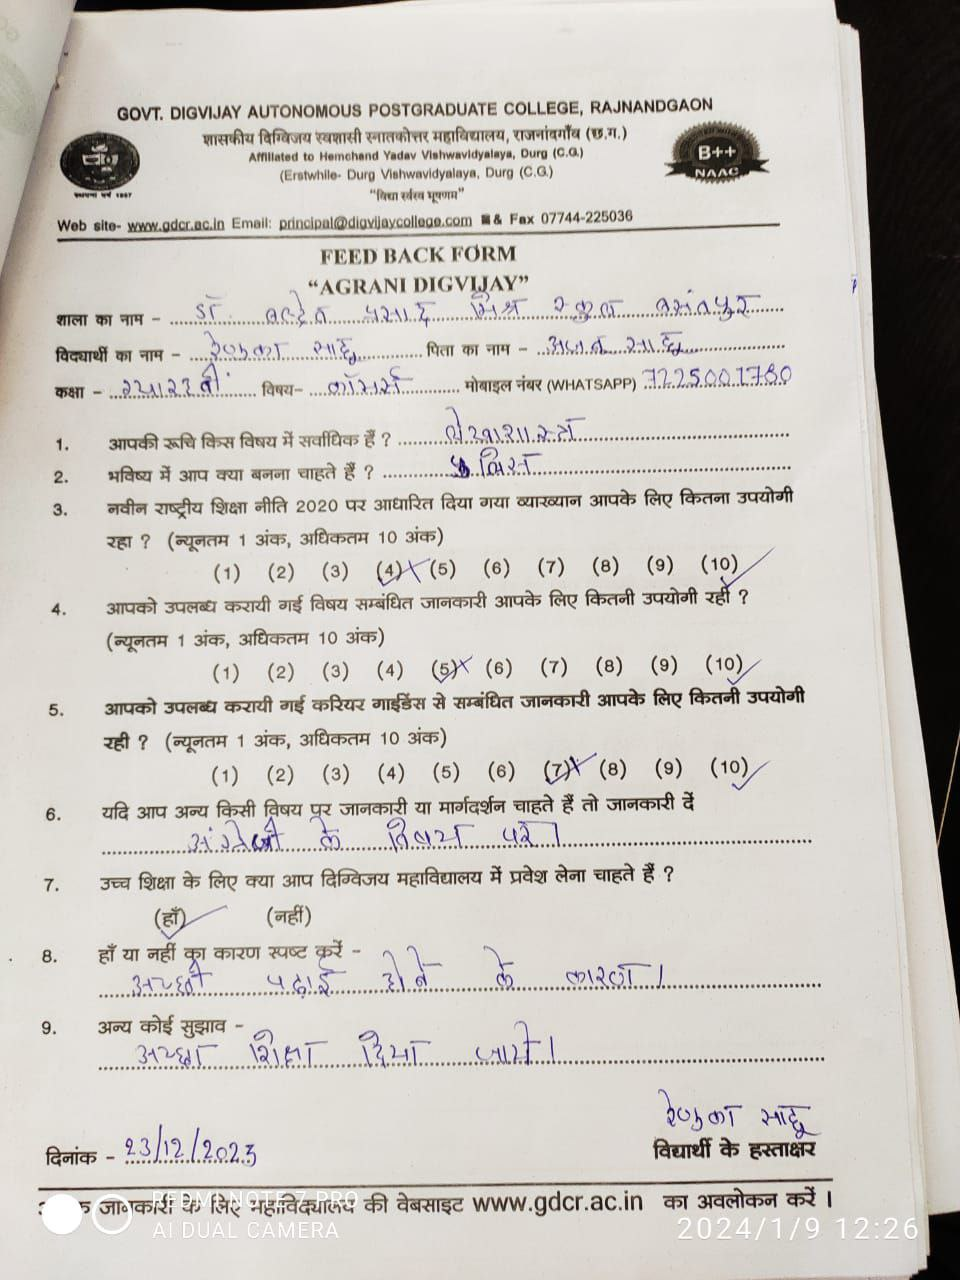 GOVT. DIGVIJAY AUTONOMOUS POSTGRADUATE COLLEGE, RAJNANDGAON
शासकीय दिग्विजय स्वशासी स्नातकोत्तर महाविद्यालय, राजनांदगाँव (छ.ग.)
Affiliated to Hemchand Yadav Vishwavidyalaya, Durg (C.G.)
(Erstwhile- Durg Vishwavidyalaya, Durg (C.G.)
B++
NAAC
स्थापना वर्ष 1957
Web site- www.gdcr.ac.in Email: principal@digvijaycollege.com & Fax 07744-225036
FEED BACK FORM
"AGRANI DIGVIJAY"
शाला का नाम - डॉ. बल्देव प्रसाद मिश्र स्कूल बसंतपुर
विद्यार्थी का नाम - रेणुका साहू पिता का नाम - साहू
कक्षा - ग्यारहवीं विषय- कॉमर्स मोबाइल नंबर (WHATSAPP) 7225001780
1. आपकी रूचि किस विषय में सर्वाधिक हैं ? लेखाशास्त्र
2. भविष्य में आप क्या बनना चाहते हैं ?
3. नवीन राष्ट्रीय शिक्षा नीति 2020 पर आधारित दिया गया व्याख्यान आपके लिए कितना उपयोगी
रहा ? (न्यूनतम 1 अंक, अधिकतम 10 अंक)
(1) (2) (3) (4) (5) (6) (7) (8) (9) (10)
4. आपको उपलब्ध करायी गई विषय सम्बंधित जानकारी आपके लिए कितनी उपयोगी रही ?
(न्यूनतम 1 अंक, अधिकतम 10 अंक)
(1) (2) (3) (4) (5) (6) (7) (8) (9) (10)
5. आपको उपलब्ध करायी गई करियर गाईडेंस से सम्बंधित जानकारी आपके लिए कितनी उपयोगी
रही ? (न्यूनतम 1 अंक, अधिकतम 10 अंक)
(1) (2) (3) (4) (5) (6) (7) (8) (9) (10)
6. यदि आप अन्य किसी विषय पर जानकारी या मार्गदर्शन चाहते हैं तो जानकारी दें
अंग्रेजी के विषय पर।
7. उच्च शिक्षा के लिए क्या आप दिग्विजय महाविद्यालय में प्रवेश लेना चाहते हैं ?
(हाँ) (नहीं)
8. हाँ या नहीं का कारण स्पष्ट करें -
अच्छी पढ़ाई होने के कारण।
9. अन्य कोई सुझाव -
अच्छा शिक्षा दिया जाये।
रेणुका साहू
दिनांक - 23/12/2023 विद्यार्थी के हस्ताक्षर
जानकारी के लिए महाविद्यालय की वेबसाइट www.gdcr.ac.in का अवलोकन करें ।
REDMI NOTE 7 PRO
AI DUAL CAMERA
2024/1/9 12:26